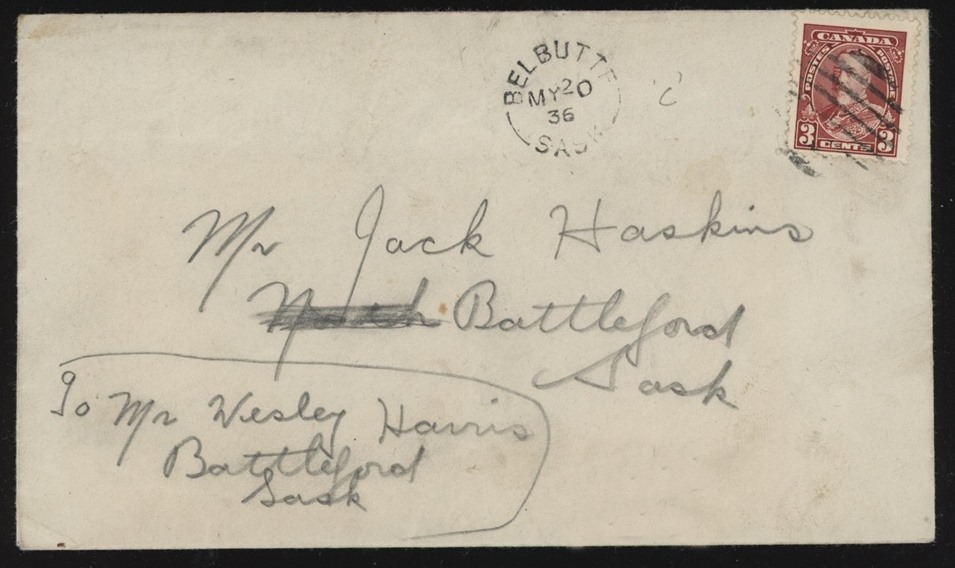 BELBUTTE
MY 20
36
SASK
CANADA
POSTES POSTAGE
3 CENTS 3
Mr Jack Haskins
North Battleford
Sask
To Mr Wesley Harris
Battleford
Sask